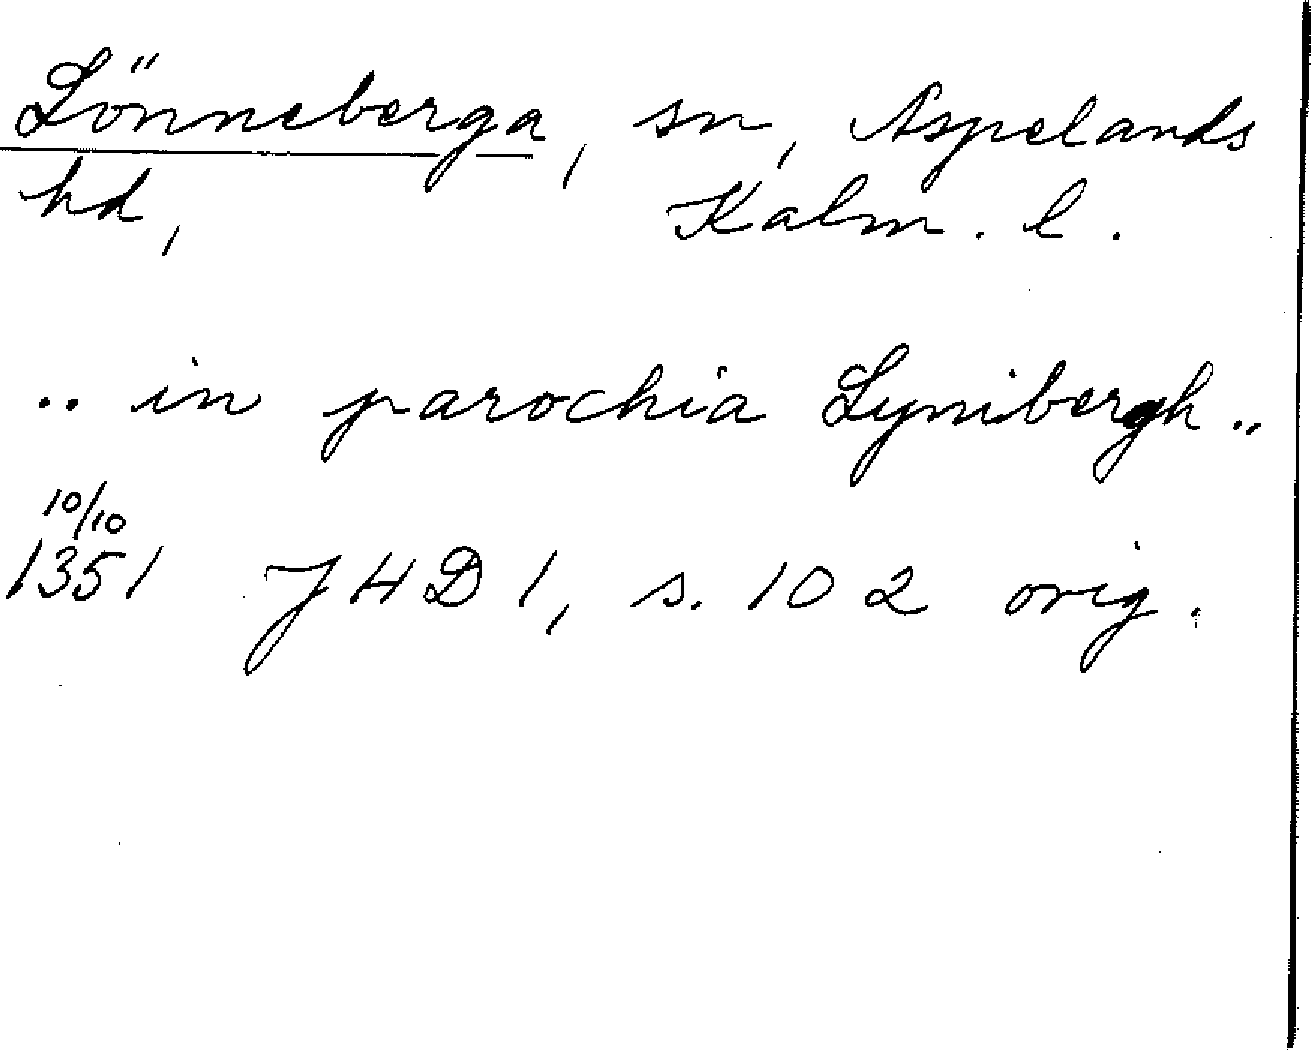 Lönneberga, sn, Aspelands
hd, Kalm. l.
.. in parochia Lynibergh ..
10/10
1351 JHD 1, s. 102 orig.